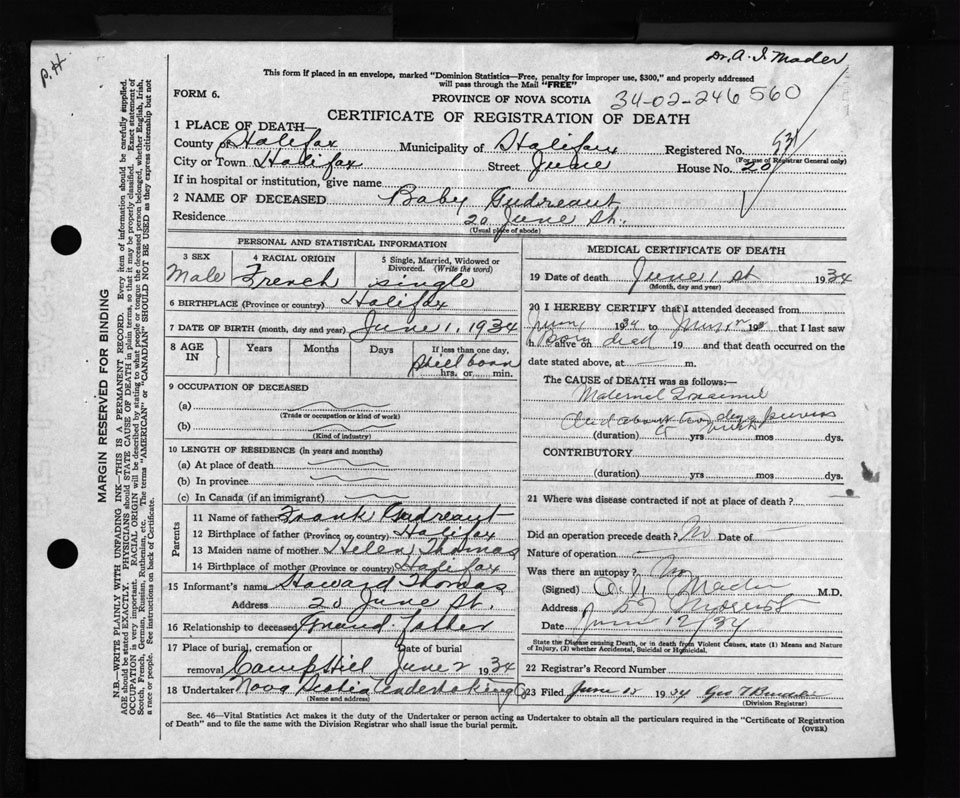 Dr. A. I. Mader
P. H
This form if placed in an envelope, marked "Dominion Statistics—Free, penalty for improper use, $300," and properly addressed
will pass through the Mail "FREE"
FORM 6.
PROVINCE OF NOVA SCOTIA 34-02-246560
CERTIFICATE OF REGISTRATION OF DEATH
1 PLACE OF DEATH—
County of Halifax Municipality of Halifax Registered No. 531
(For use of Registrar General only)
City or Town Halifax Street June House No. 20
If in hospital or institution, give name
2 NAME OF DECEASED Baby Gudreaut
Residence 20 June St.
(Usual place of abode)
PERSONAL AND STATISTICAL INFORMATION
3 SEX 4 RACIAL ORIGIN 5 Single, Married, Widowed or
Divorced. (Write the word)
Male French single
6 BIRTHPLACE (Province or country) Halifax
7 DATE OF BIRTH (month, day and year) June 1, 1934
8 AGE IN Years Months Days If less than one day,
Still born
hrs. or min.
9 OCCUPATION OF DECEASED
(a)
(Trade or occupation or kind of work)
(b)
(Kind of industry)
10 LENGTH OF RESIDENCE (in years and months)
(a) At place of death
(b) In province
(c) In Canada (if an immigrant)
Parents
11 Name of father Frank Gudreaut
12 Birthplace of father (Province or country) Halifax
13 Maiden name of mother Helen Thomas
14 Birthplace of mother (Province or country) Halifax
15 Informant's name Howard Thomas
Address 20 June St.
16 Relationship to deceased Grand father
17 Place of burial, cremation or Date of burial
removal Camp Hill June 2 1934
18 Undertaker Nova Scotia Undertaking Co
(Name and address)
MEDICAL CERTIFICATE OF DEATH
19 Date of death June 1 st 1934
(Month, day and year)
20 I HEREBY CERTIFY that I attended deceased from
June 1 1934 to June 1st 1934 that I last saw
h alive on born dead 19 and that death occurred on the
date stated above, at m.
The CAUSE of DEATH was as follows:—
Maternal
Died about two days previous
(duration) yrs mos dys.
CONTRIBUTORY
(duration) yrs mos dys.
21 Where was disease contracted if not at place of death?
Did an operation precede death? No Date of
Nature of operation
Was there an autopsy? No
(Signed) A. I. Mader M.D.
Address 57 Morris St
Date June 12/34
State the Disease causing Death, or in death from Violent Causes, state (1) Means and Nature
of Injury, (2) whether Accidental, Suicidal or Homicidal.
22 Registrar's Record Number
23 Filed June 15 1934 Geo
(Division Registrar)
Sec. 46—Vital Statistics Act makes it the duty of the Undertaker or person acting as Undertaker to obtain all the particulars required in the "Certificate of Registration
of Death" and to file the same with the Division Registrar who shall issue the burial permit.
(OVER)
MARGIN RESERVED FOR BINDING
N.B.—WRITE PLAINLY WITH UNFADING INK—THIS IS A PERMANENT RECORD. Every item of information should be carefully supplied.
AGE should be stated EXACTLY. PHYSICIANS should STATE CAUSE OF DEATH in plain terms, so that it may be properly classified. Exact statement of
OCCUPATION is very important. RACIAL ORIGIN will be described by stating to what people or tongue the deceased person belonged, whether English, Irish,
Scotch, French, German, Russian, Ruthenian, etc. The terms "AMERICAN" or "CANADIAN" SHOULD NOT BE USED as they express citizenship but not
a race or people. See instructions on back of Certificate.